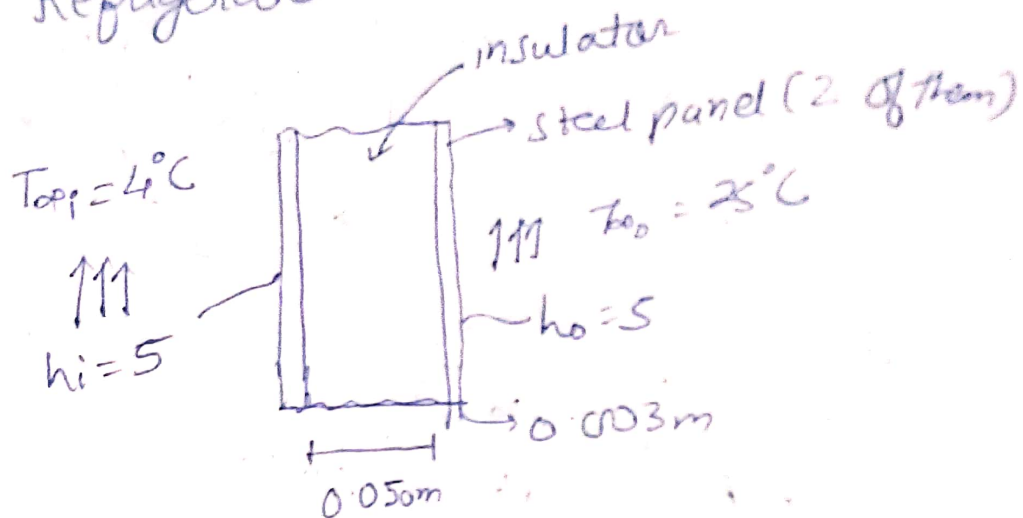 insulator
steel panel (2 of them)
T∞i = 4°C
T∞o = 25°C
hi = 5
ho = 5
0.003m
0.050m